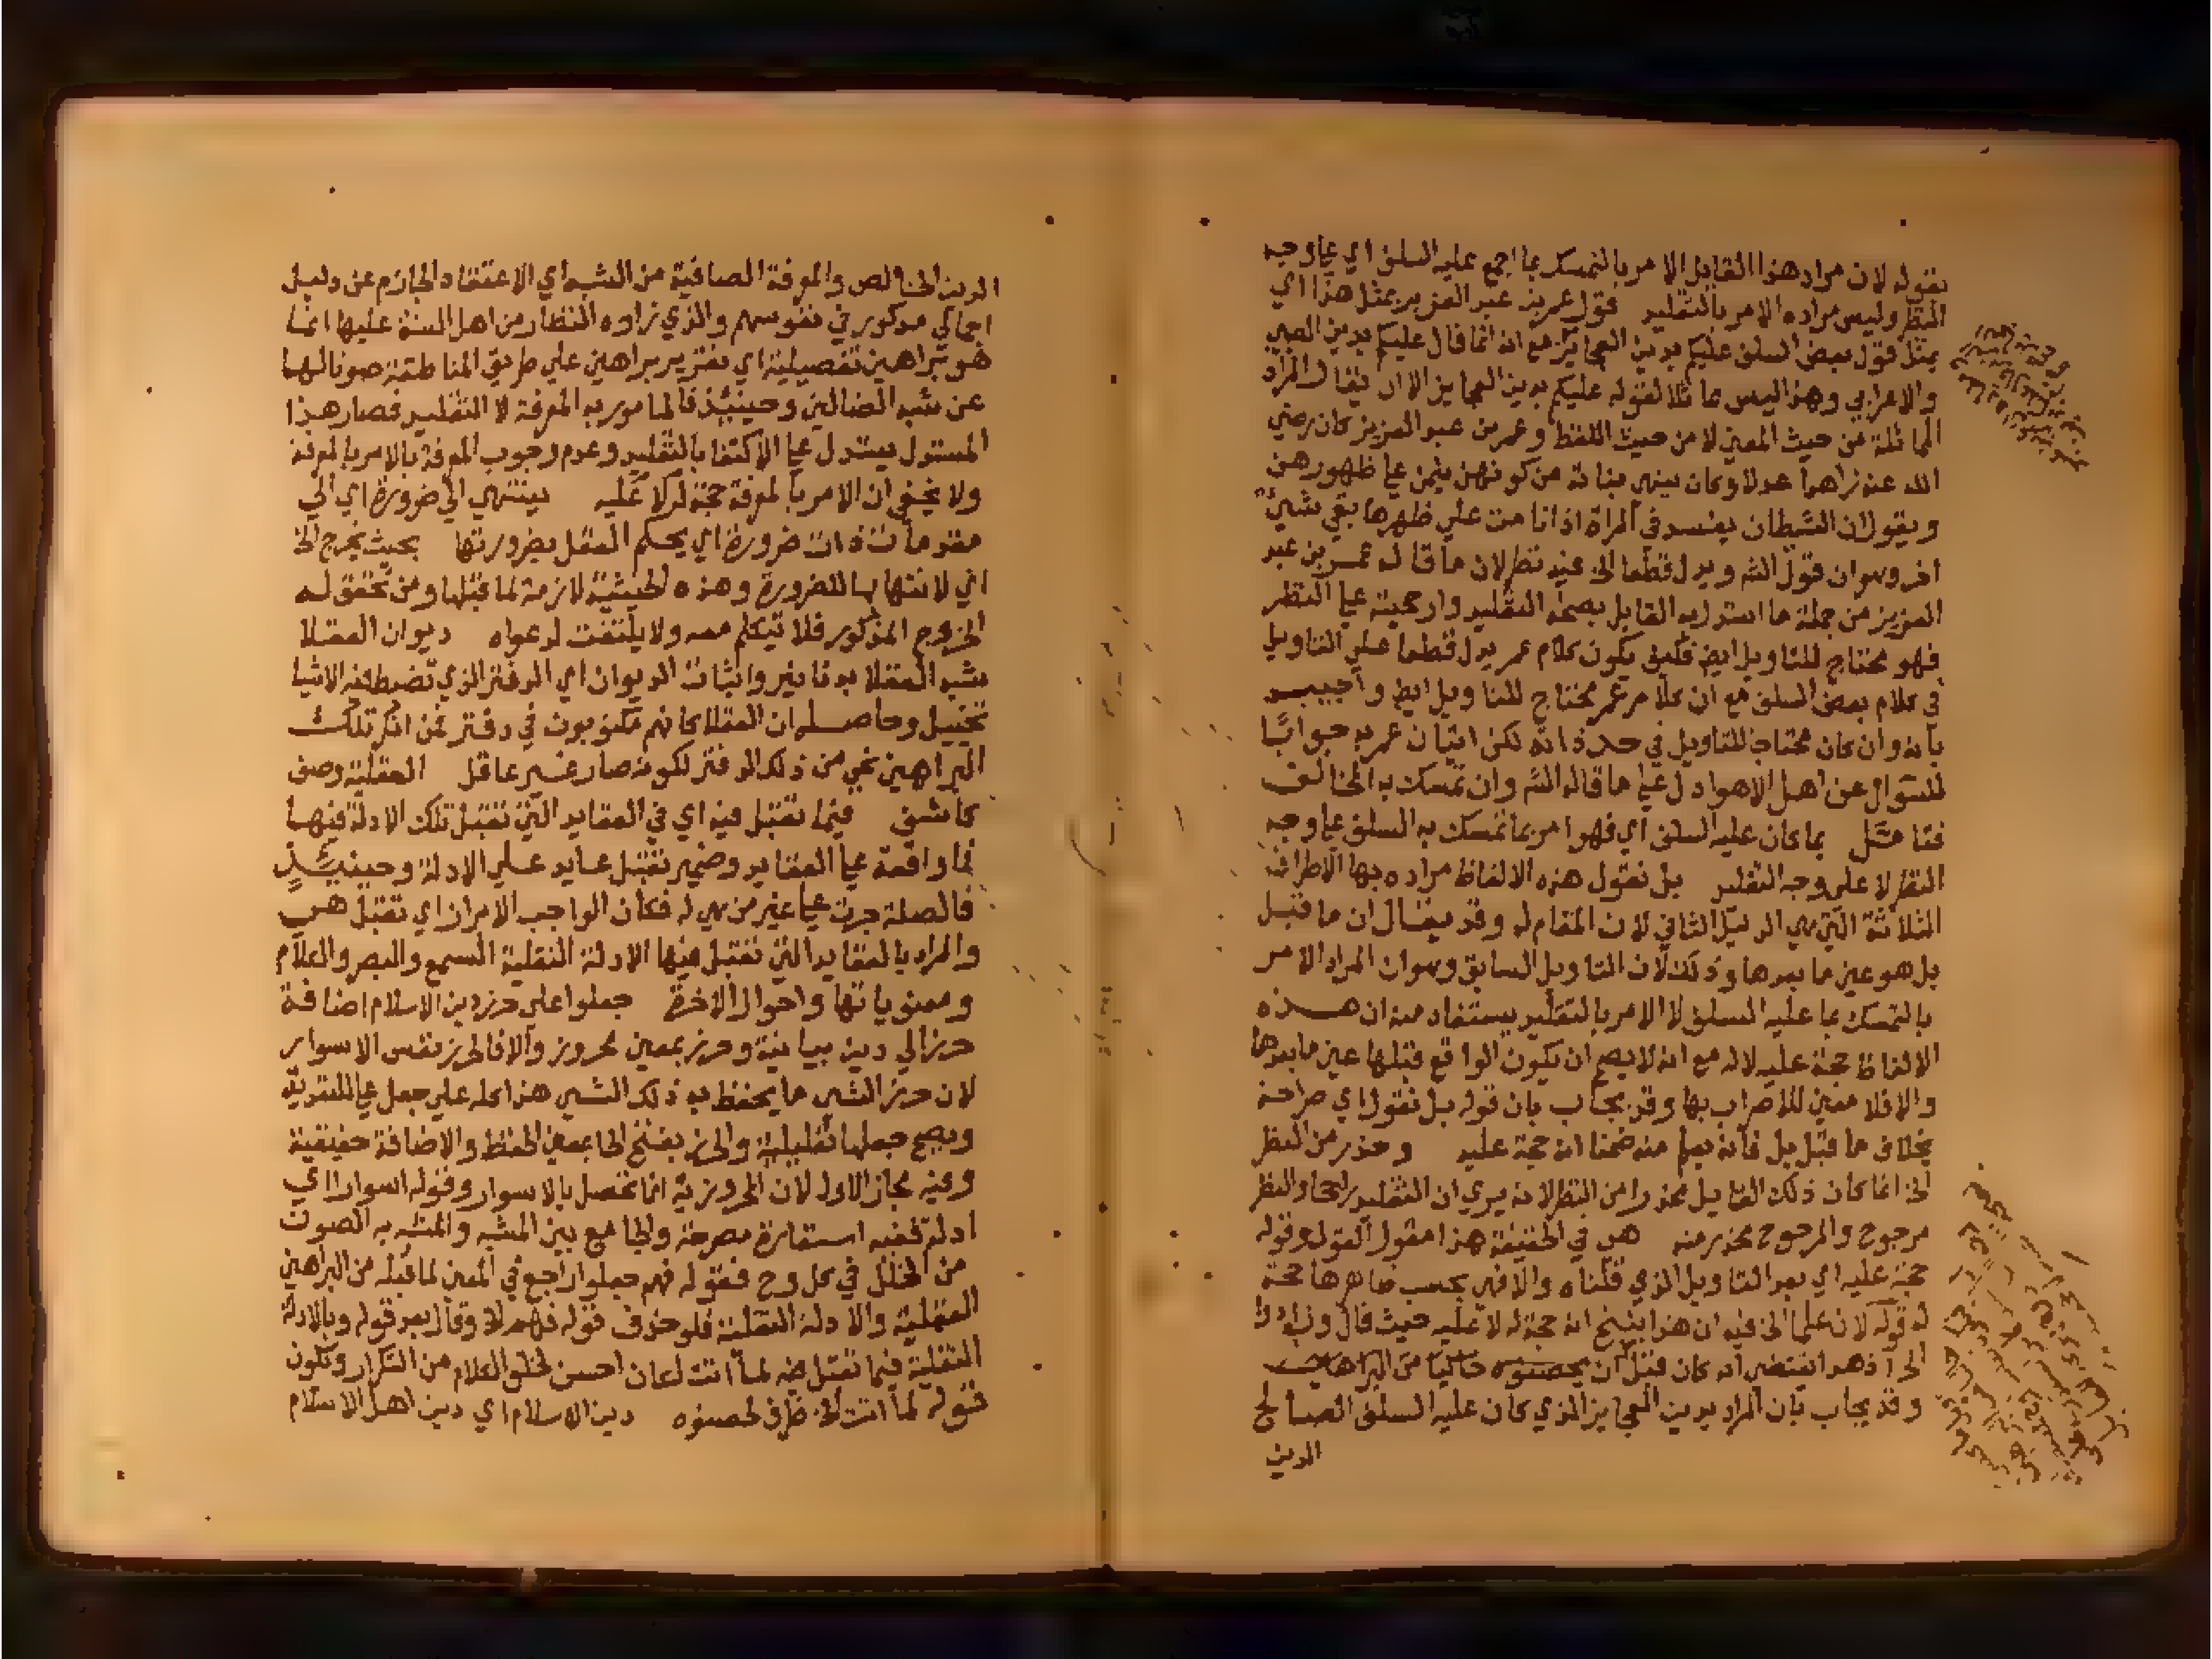 بقوله لان مراد هذا القايل الامر بالتمسك بما اجمع عليه السلف اي علي وجه
النظر وليس مراده الامر بالتقليد فقول عمر بن عبد العزيز بمثل هذا اي
بمثل قول بعض السلف عليكم بدين العجايز مع انه انما قال عليكم بدين الصبي
والاعرابي وهذا ليس مماثلا لقوله عليكم بدين العجايز الا ان يقال المراد
المماثلة من حيث المعني لا من حيث اللفظ وعمر بن عبد العزيز كان رضي
الله عنه زاهدا عدلا وكان ينهي بناته من كونهن ينمن علي ظهورهن
ويقول ان الشيطان يفسد في المراة اذا نامت علي ظهرها بقي شيئ
اخر وهو ان قول الشم ويدل قطعا الخ فيه نظر لان ما قاله عمر بن عبد
العزيز من جملة ما استدل به القايل بصحة التقليد وارجحيته علي النظر
فهو محتاج للتاويل ايضا فكيف يكون كلام عمر يدل قطعا علي التاويل
في كلام بعض السلف مع ان كلام عمر محتاج للتاويل ايض واجيب
بانه وان كان محتاجا للتاويل في حد ذاته لكن اتيان عمر به جوابا
للسوال عن اهل الاهوا دل علي ما قاله الشم وان تمسك به المخالف
فتامل بما كان عليه السلف اي فهو امر بما تمسك به السلف علي وجه
النظر لا علي وجه التقليد بل نقول هذه الالفاظ مراده بها الاطراف
الثلاثة التي هي الدليل الثاني لان المقام له وقد يقال ان ما قبل
بل هو عين ما بعدها وذلك لان التاويل السابق وهو ان المراد الامر
بالتمسك بما عليه السلف لا الامر بالتقليد يستفاد منه ان هذه
الالفاظ حجة عليه لا له مع انه لا يصح ان يكون الواقع قبلها عين ما بعدها
والا فلا معني للاضراب بها وقد يجاب بان قوله بل نقول اي صراحة
بخلاف ما قبل بل فانه يعلم منه ضمنا انه حجة عليه وحذر من النظر
الخ انما كان ذلك القايل محذرا من النظر لانه يري ان التقليد راجح والنظر
مرجوح والمرجوح يحذر منه هي في الحقيقة هذا مقول القول وقوله
حجة عليه اي بعد التاويل الذي قلناه والا فهي بحسب ظاهرها حجة
له قوله لان علما الخ فيه ان هذا ينتج انه حجة له لا عليه حيث قال وزادوا
الخ اذ هذا يقتضي انه كان قبل ان يحصنوه خاليا من البراهين
وقد يجاب بان المراد بدين العجايز الذي كان عليه السلف الصالح
الدين
الدين الخالص والمعرفة الصافية من الشبه اي الاعتقاد الجازم عن دليل
اجمالي مركوز في نفوسهم والذي زاده النظار من اهل السنة عليها انما
هو براهين تفصيلية اي تقرير براهين علي طريق المناطقة صونا لها
عن شبه الضالين وحينئذ فالمامور به المعرفة لا التقليد فصار هذا
المستدل يستدل علي الاكتفا بالتقليد وعدم وجوب المعرفة بالامر بالمعرفة
ولا يخفي ان الامر بالمعرفة حجة لك لا عليه ينتهي الي ضرورة اي الي
مقدمات ذات ضرورة اي يحكم العقل بضرورتها بحيث يخرج الخ
اي لانتهايها للضرورة وهذه الحيثية لازمة لما قبلها ومن تحقق له
الخروج المذكور فلا تتكلم معه ولا يلتفت لدعواه ديوان العقلا
شبه العقلا بدنانير واثبات الديوان اي الدفتر الذي تضبط فيه الاشيا
تخييل وحاصله ان العقلا كانهم مكتوبون في دفتر فمن انكر تلك
البراهين محي من ذلك الدفتر لكونه صار غير عاقل العقلية وصف
كاشف فيما تقبل فيه اي في العقايد التي تقبل تلك الادلة فيها
فما واقعة علي العقايد وضمير تقبل عايد علي الادلة وحينئذ
فالصلة جرت علي غير من هي له فكان الواجب الابراز اي تقبل هي
والمراد بالعقايد التي تقبل فيها الادلة النقلية السمع والبصر والكلام
ومعنوياتها واحوال الاخرة جعلوا علي حرز دين الاسلام اضافة
حرز الي دين بيانية وحرز بمعني محروز والا فالحرز نفس الاسوار
لان حرز الشي ما يحفظ به ذلك الشي هذا كله علي جعل علي للتعدية
ويصح جعلها تعليلية والحرز بفتح الحا بمعني الحفظ والاضافة حقيقية
وفيه مجاز الاول لان المحروزية انما تحصل بالاسوار وقوله اسوارا اي
ادلة ففيه استعارة مصرحة والجامع بين المشبه والمشبه به الصون
من الخلل في كل وح فقوله فهم جعلوا راجع في المعني لما قبله من البراهين
العقلية والادلة النقلية فلو حذف قوله فهم الخ وقال بعد قوله وبالادلة
النقلية فيما تقبل فيه لما انت لكان احسن لخلو الكلام من التكرار وتكون
قوله لما انت الخ ظرف لحصنوه دين الاسلام اي دين اهل الاسلام